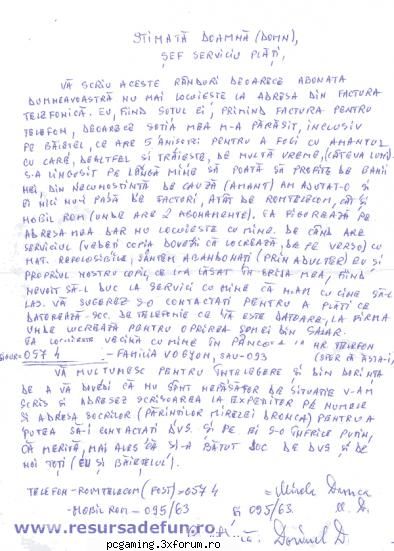 STIMATĂ DOAMNĂ (DOMN),
ȘEF SERVICIU PLĂȚI,
VĂ SCRIU ACESTE RÂNDURI DEOARECE ABONATA
DUMNEAVOASTRĂ NU MAI LOCUIEȘTE LA ADRESA DIN FACTURA
TELEFONICĂ. EU, FIIND SOȚUL EI, PRIMIND FACTURA PENTRU
TELEFON, DEOARECE SOȚIA MEA M-A PĂRĂSIT, INCLUSIV
PE BĂIEȚEL, CE ARE 5 ANIȘORI PENTRU A FUGI CU AMANTUL
CU CARE, DEALTFEL SI TRĂIEȘTE, DE MULTĂ VREME, (CÂTEVA LUNI).
S-A LINGUȘIT PE LÂNGĂ MINE SĂ POATĂ SĂ PROFITE DE BANII
MEI, DIN NECUNOSTINȚĂ DE CAUZĂ (AMANT) AM AJUTAT-O ȘI
EI NICI NU-I PASĂ DE FACTURI, ATÂT DE ROMTELECOM, CÂT ȘI
MOBIL ROM (UNDE ARE 2 ABONAMENTE). EA FIGUREAZĂ PE
ADRESA MEA DAR NU LOCUIESTE CU MINE. DE CÂND ARE
SERVICIUL (VEDEȚI COPIA DOVEZII CĂ LUCREAZĂ, DE PE VERSO) CU
MAT. REFOLOSIBILE, SÂNTEM ABANDONAȚI (PRIN ADULTER) EU ȘI
PROPRIUL NOSTRU COPIL, CE L-A LĂSAT ÎN GRIJA MEA, FIIND
NEVOIT SĂ-L DUC LA SERVICI CU MINE CĂ N-AM CU CINE SĂ-L
LAS. VĂ SUGEREZ S-O CONTACTAȚI PENTRU A PLĂTI CE
DATOREAZĂ SOC. DE TELEFONIE CE VĂ ESTE DATOARE, LA FIRMA
UNDE LUCREAZĂ PENTRU OPRIREA SUMEI DIN SALAR.
EA LOCUIESTE VECINĂ CU MINE ÎN PÂNCOTA LA NR. TELEFON
0574 - FAMILIA VOGYON, SAU-093 (SPER CĂ ĂSTA-I,
VĂ MULȚUMESC PENTRU ÎNȚELEGERE ȘI DIN DORINȚA
DE A VĂ DOVEDI CĂ NU SÎNT NEPĂSĂTOR DE SITUAȚIE V-AM
SCRIS ȘI ADRESEZ SCRISOAREA LA EXPEDITOR PE NUMELE
ȘI ADRESA SOCRILOR (PĂRINȚILOR MIRELEI DRONCA) PENTRU A
PUTEA SĂ-I CONTACTAȚI DVS. ȘI PE EI S-O ÎNFRICE PUȚIN,
CĂ MERITĂ, MAI ALES CĂ ȘI-A BĂTUT JOC DE DVS ȘI DE
NOI TOȚI (EU ȘI BĂIEȚELUL).
TELEFON-ROMTELECOM (POST) = 0574 = Mirela Dronca
-MOBIL ROM - 095/63 ȘI 095/63.
www.resursadefun.ro
pcgaming.3xforum.ro